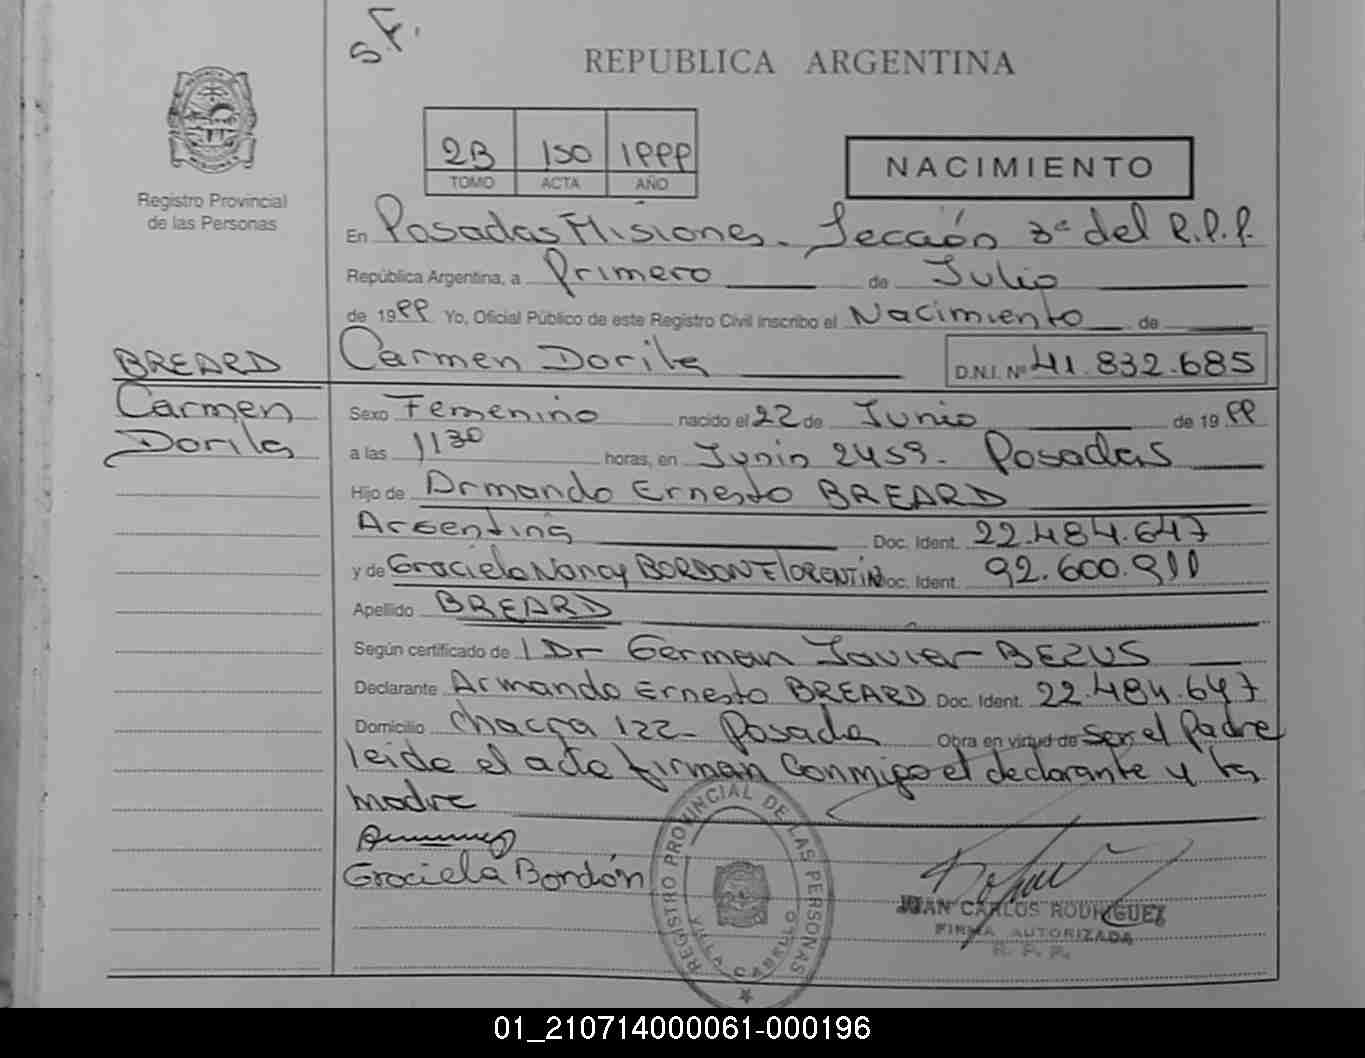 S.F.
REPUBLICA ARGENTINA
2B 150 1999
TOMO ACTA AÑO
NACIMIENTO
Registro Provincial
de las Personas
En Posadas Misiones. Sección 3ª del R.P.P.
República Argentina, a Primero de Julio
de 1999 Yo, Oficial Público de este Registro Civil inscribo el Nacimiento de
BREARD
Carmen
Dorila
Carmen Dorila D.N.I. Nº 41.832.685
Sexo Femenino nacido el 22 de Junio de 1999
a las 1130 horas, en Junin 2459. Posadas
Hijo de Armando Ernesto BREARD
Argentina Doc. Ident. 22.484.647
y de Graciela Nancy BORDON FLORENTIN Doc. Ident. 92.600.911
Apellido BREARD
Según certificado de 1 Dr German Javier BEZUS
Declarante Armando Ernesto BREARD Doc. Ident. 22.484.647
Domicilio chacra 122- Posadas Obra en virtud de ser el Padre
leida el acta firman conmigo el declarante y la
madre
Graciela Bordón
REGISTRO PROVINCIAL DE LAS PERSONAS
VILLA CABELLO
JUAN CARLOS RODRIGUEZ
FIRMA AUTORIZADA
R. P. P.
01_210714000061-000196